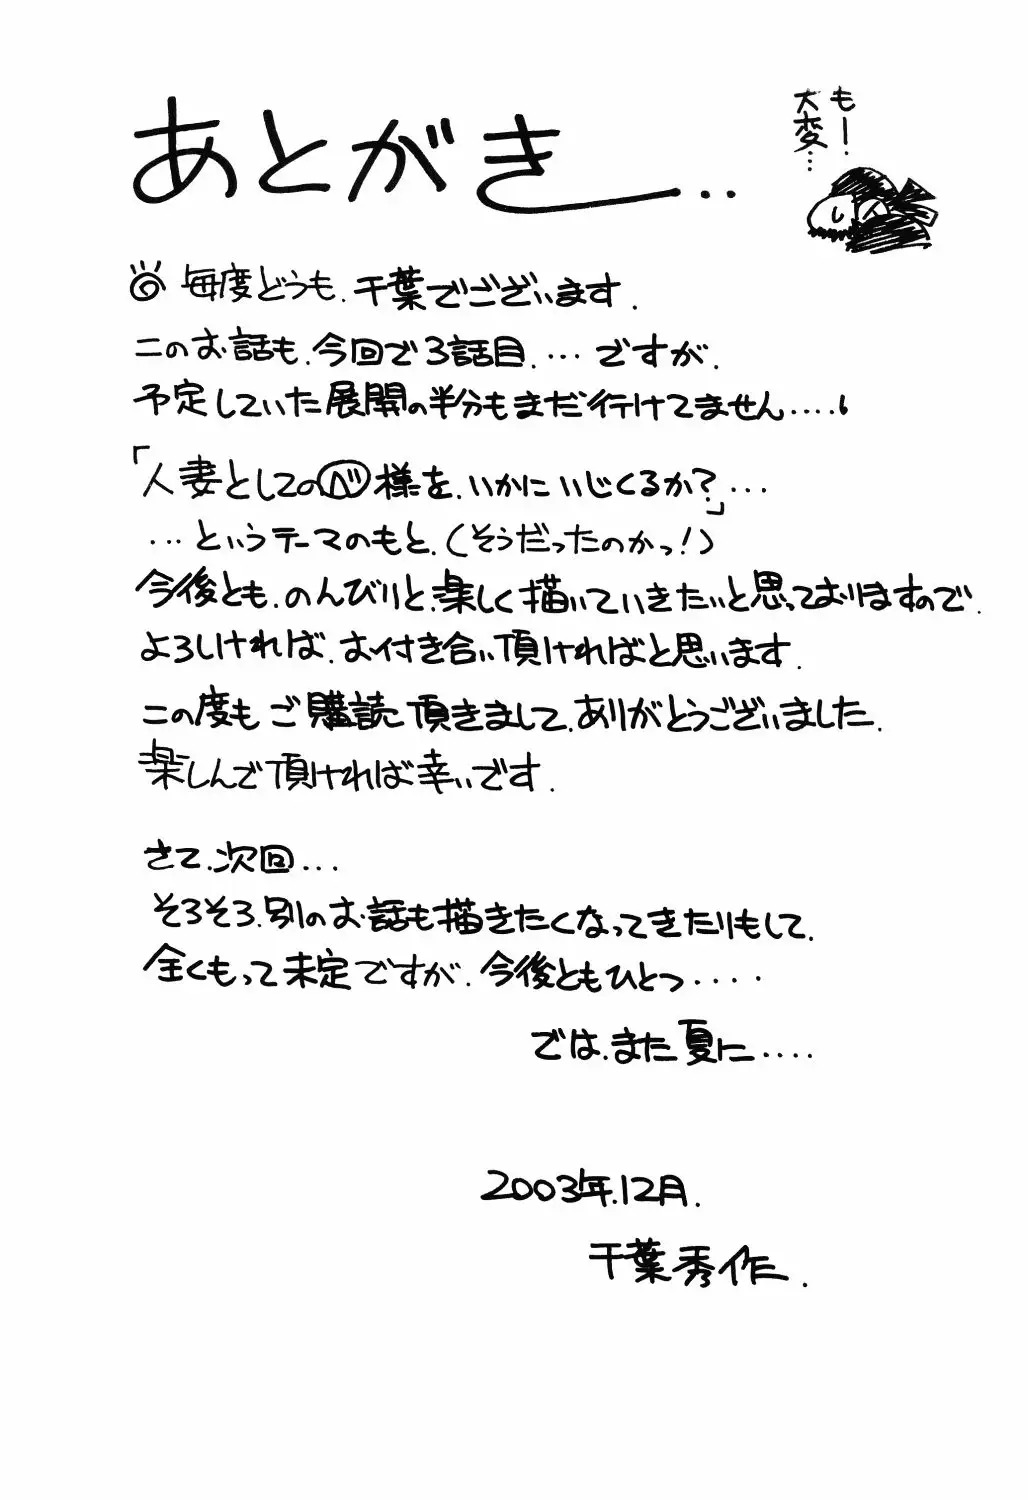 あとがき...
もー
大変...
◎毎度どうも.千葉でございます.
このお話も.今回で3話目....ですが.
予定していた展開の半分もまだ行けてません....
「人妻としてのべ様を.いかにいじくるか?...」
...というテーマのもと.(そうだったのかっ!)
今後とも.のんびりと.楽しく描いていきたいと思っておりますので.
よろしければ.お付き合い頂ければと思います.
この度もご購読頂きまして.ありがとうございました.
楽しんで頂ければ幸いです.
さて.次回...
そろそろ.別のお話も描きたくなってきたりもして.
全くもって未定ですが.今後ともひとつ....
では.また夏に....
2003年.12月.
千葉秀作.